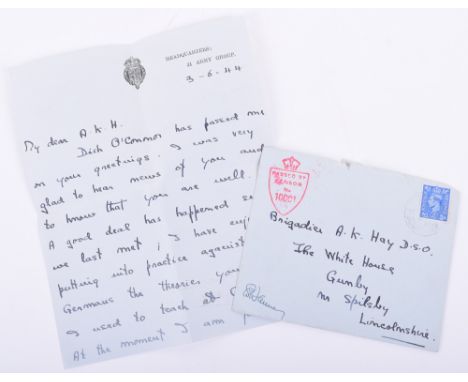 HEADQUARTERS,
21 ARMY GROUP.
3-6-44
My dear A.K.H.
Dick O'Connor has passed me
on your greetings. I was very
glad to hear news of you and
to know that you are well.
A good deal has happened
we last met; I have
putting into practice against
Germans the theories you
I used to teach at
At the moment I am
PASSED BY
CENSOR
No
10001
Brigadier A.K. Hay D.S.O.
The White House
Gunby
nr Spilsby
Lincolnshire.